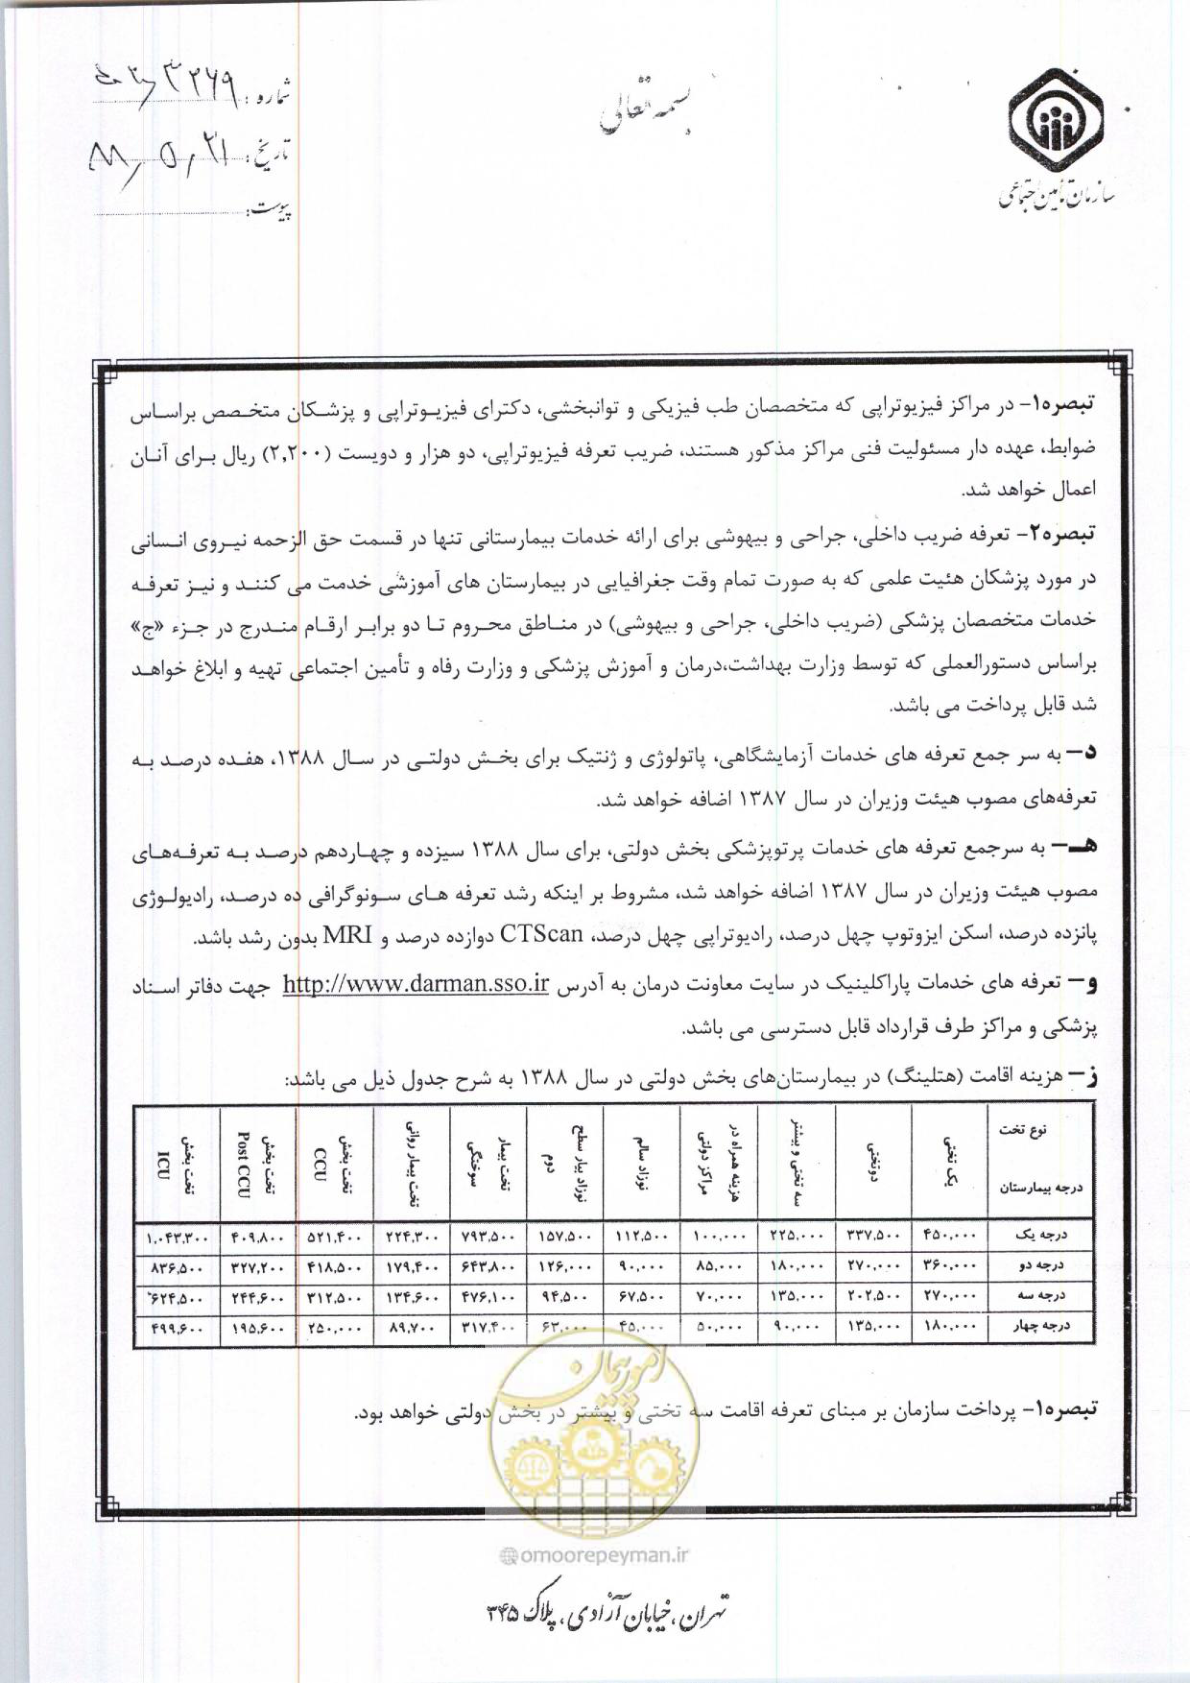 بسمه تعالی
سازمان تأمین اجتماعی
شماره: ۵۰۲۰/۳۳۶۹
تاریخ: ۸۸/۵/۲۱
پیوست:
تبصره۱- در مراکز فیزیوتراپی که متخصصان طب فیزیکی و توانبخشی، دکترای فیزیوتراپی و پزشکان متخصص براساس
ضوابط، عهده دار مسئولیت فنی مراکز مذکور هستند، ضریب تعرفه فیزیوتراپی، دو هزار و دویست (۲,۲۰۰) ریال برای آنان
اعمال خواهد شد.
تبصره۲- تعرفه ضریب داخلی، جراحی و بیهوشی برای ارائه خدمات بیمارستانی تنها در قسمت حق الزحمه نیروی انسانی
در مورد پزشکان هئیت علمی که به صورت تمام وقت جغرافیایی در بیمارستان های آموزشی خدمت می کنند و نیز تعرفه
خدمات متخصصان پزشکی (ضریب داخلی، جراحی و بیهوشی) در مناطق محروم تا دو برابر ارقام مندرج در جزء «ج»
براساس دستورالعملی که توسط وزارت بهداشت،درمان و آموزش پزشکی و وزارت رفاه و تأمین اجتماعی تهیه و ابلاغ خواهد
شد قابل پرداخت می باشد.
د- به سر جمع تعرفه های خدمات آزمایشگاهی، پاتولوژی و ژنتیک برای بخش دولتی در سال ۱۳۸۸، هفده درصد به
تعرفه‌های مصوب هیئت وزیران در سال ۱۳۸۷ اضافه خواهد شد.
هـ- به سرجمع تعرفه های خدمات پرتوپزشکی بخش دولتی، برای سال ۱۳۸۸ سیزده و چهاردهم درصد به تعرفه‌های
مصوب هیئت وزیران در سال ۱۳۸۷ اضافه خواهد شد، مشروط بر اینکه رشد تعرفه های سونوگرافی ده درصد، رادیولوژی
پانزده درصد، اسکن ایزوتوپ چهل درصد، رادیوتراپی چهل درصد، CTScan دوازده درصد و MRI بدون رشد باشد.
و- تعرفه های خدمات پاراکلینیک در سایت معاونت درمان به آدرس http://www.darman.sso.ir جهت دفاتر اسناد
پزشکی و مراکز طرف قرارداد قابل دسترسی می باشد.
ز- هزینه اقامت (هتلینگ) در بیمارستان‌های بخش دولتی در سال ۱۳۸۸ به شرح جدول ذیل می باشد:
نوع تخت درجه بیمارستان | یک تختی | دوتختی | سه تختی و بیشتر | هزینه همراه در مراکز دولتی | نوزاد سالم | نوزاد بیمار سطح دوم | تخت بیمار سوختگی | تخت بیمار روانی | تخت بخش CCU | تخت بخش Post CCU | تخت بخش ICU
درجه یک | ۴۵۰,۰۰۰ | ۳۳۷,۵۰۰ | ۲۲۵,۰۰۰ | ۱۰۰,۰۰۰ | ۱۱۲,۵۰۰ | ۱۵۷,۵۰۰ | ۷۹۳,۵۰۰ | ۲۲۴,۳۰۰ | ۵۲۱,۴۰۰ | ۴۰۹,۸۰۰ | ۱,۰۴۳,۳۰۰
درجه دو | ۳۶۰,۰۰۰ | ۲۷۰,۰۰۰ | ۱۸۰,۰۰۰ | ۸۵,۰۰۰ | ۹۰,۰۰۰ | ۱۲۶,۰۰۰ | ۶۴۳,۸۰۰ | ۱۷۹,۴۰۰ | ۴۱۸,۵۰۰ | ۳۲۷,۲۰۰ | ۸۳۶,۵۰۰
درجه سه | ۲۷۰,۰۰۰ | ۲۰۲,۵۰۰ | ۱۳۵,۰۰۰ | ۷۰,۰۰۰ | ۶۷,۵۰۰ | ۹۴,۵۰۰ | ۴۷۶,۱۰۰ | ۱۳۴,۶۰۰ | ۳۱۲,۵۰۰ | ۲۴۴,۶۰۰ | ۶۲۴,۵۰۰
درجه چهار | ۱۸۰,۰۰۰ | ۱۳۵,۰۰۰ | ۹۰,۰۰۰ | ۵۰,۰۰۰ | ۴۵,۰۰۰ | ۶۳,۰۰۰ | ۳۱۷,۴۰۰ | ۸۹,۷۰۰ | ۲۵۰,۰۰۰ | ۱۹۵,۶۰۰ | ۴۹۹,۶۰۰
تبصره۱- پرداخت سازمان بر مبنای تعرفه اقامت سه تختی و بیشتر در بخش دولتی خواهد بود.
امور پیمان
@omoorepeyman.ir
تهران، خیابان آزادی، پلاک ۳۴۵